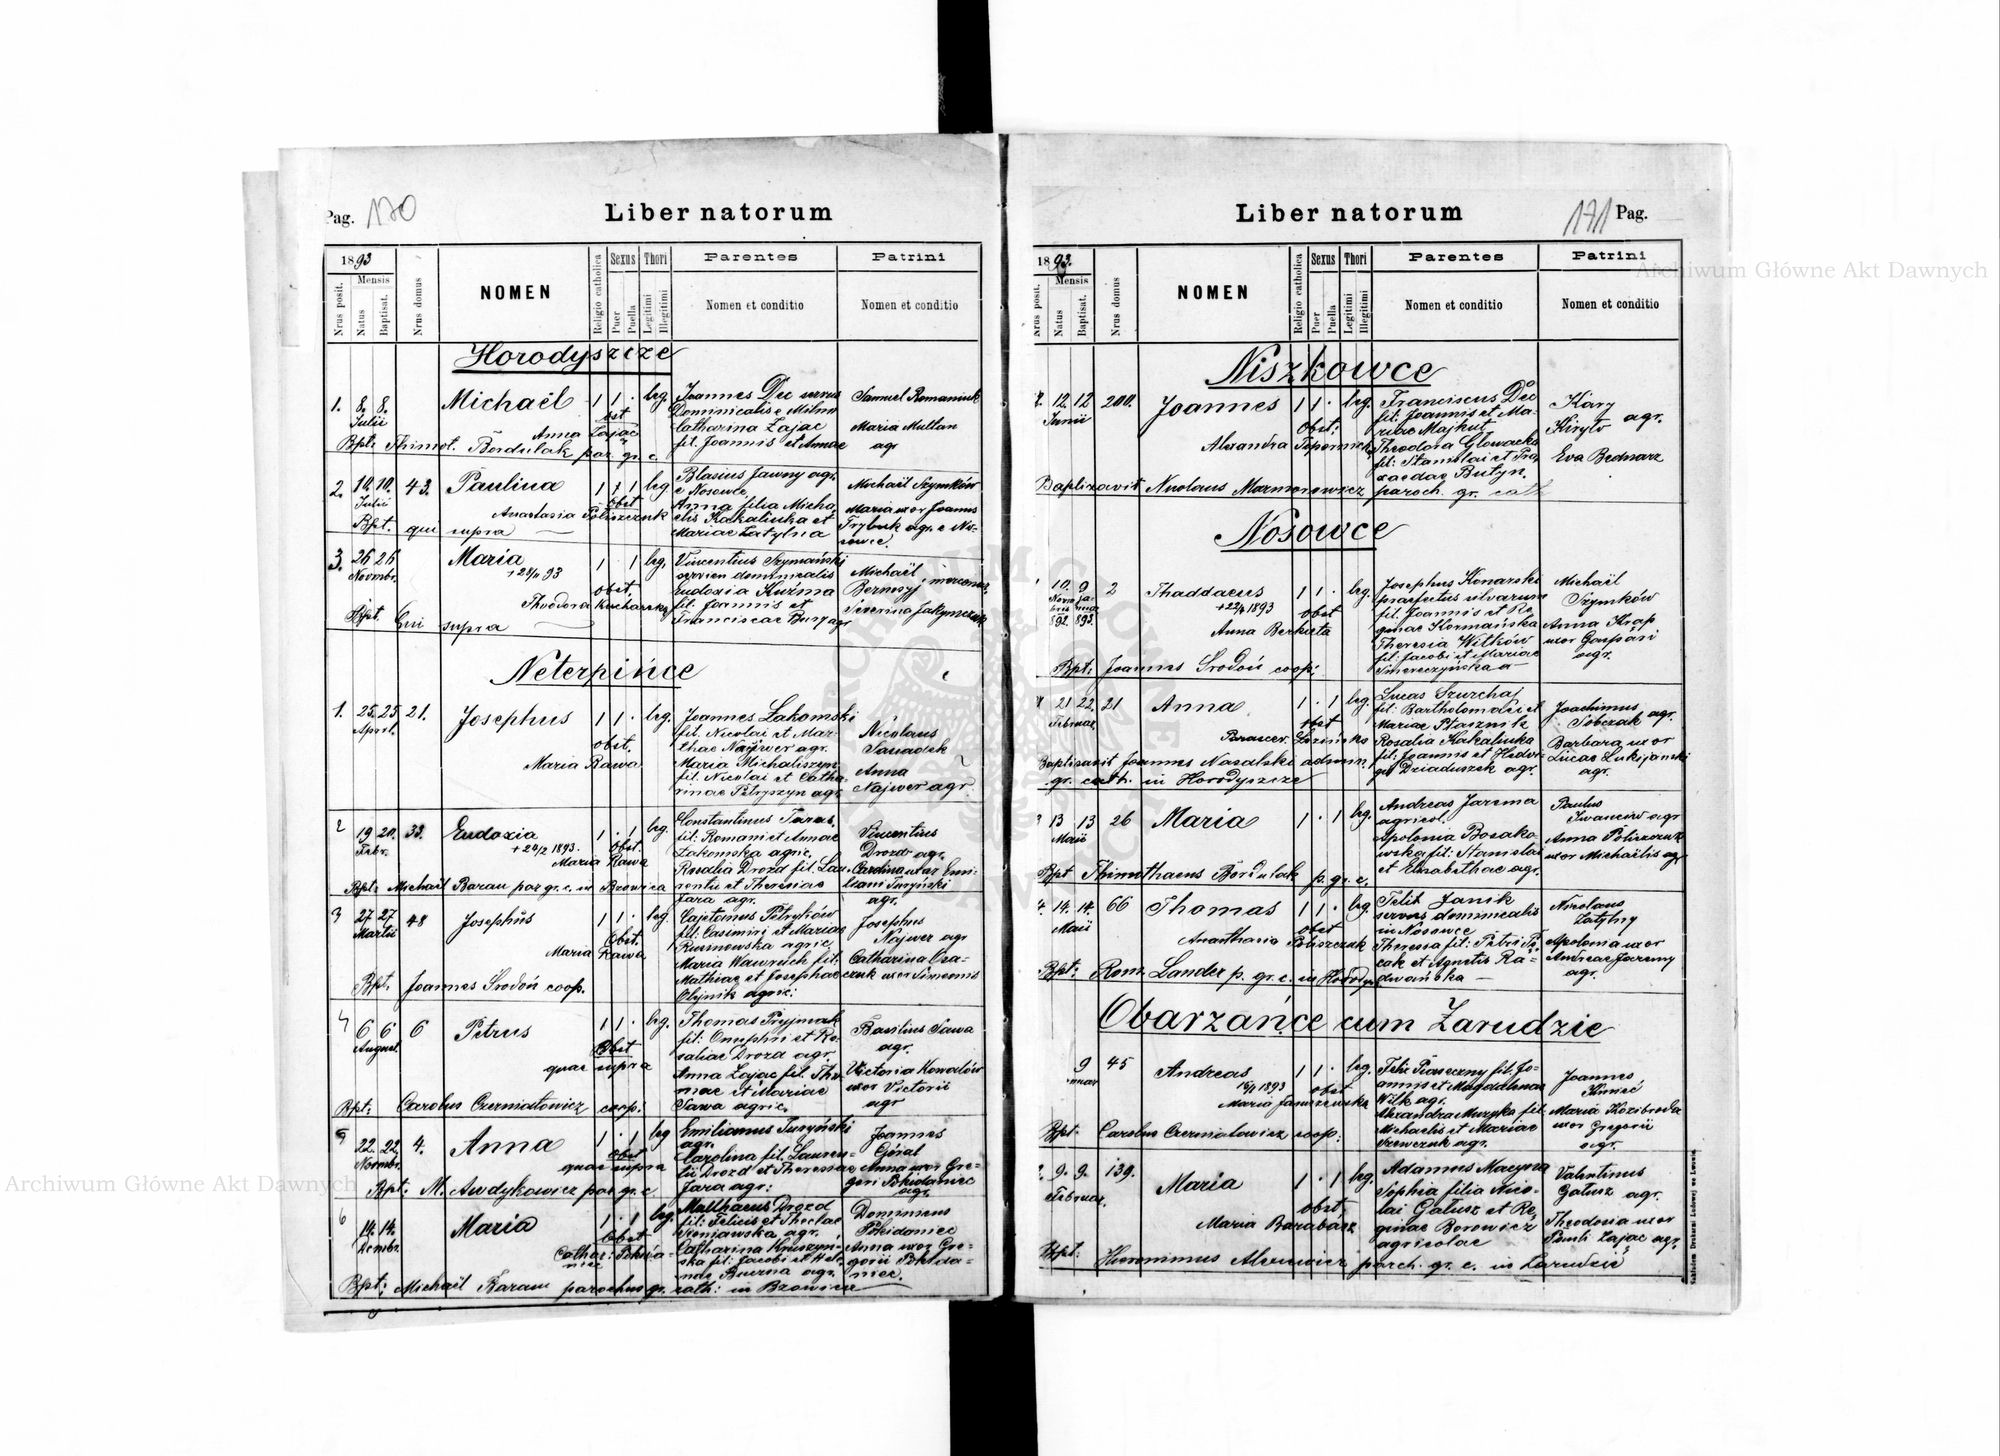 Pag. 170
Liber natorum
1893
Mensis
Nrus posit.
Natus
Baptisat.
Nrus domus
NOMEN
Religio catholica
Sexus
Puer
Puella
Thori
Legitimi
Illegitimi
Parentes
Nomen et conditio
Patrini
Nomen et conditio
Horodyszcze
1. 8. 8. Michaël 1 1 . leg. Joannes Dec servus Samuel Romaniuk
Julii obst. Dominicalis e Milno
Anna Zając Catharina Zając Maria Multan
Bpt: Thimot. Bordulak par. gr. c. fil. Joannis et Annae agr
2. 10. 10. 43. Paulina 1 . 1 leg Blasius Jawny agr. Michaël Szymków
Julii obst e Nosowce
Anastasia Poliszczuk Anna filia Micha- Maria uxor Joannis
Bpt. qui supra elis Kakaliuka et Trybuk agr. e No-
Mariae Zatylna sowce.
3. 26 26 Maria 1 . 1 leg. Vincentius Szymański Michaël
Novmbr. obst. servien dominicalis
Theodora Kucharska Eudoxia Kuźma
Bpt. Qui supra fil. Joannis et Severina
Franciscae
Neterpińce
1. 25. 25. 21. Josephus 1 1 . leg. Joannes Łakomski Nicolaus
April. obst. fil. Nicolai et Mar-
Maria Rawa thae Najwer agr.
Maria Michaliszyn Anna
fil. Nicolai et Catha- Najwer agr
rinae Petryszyn agr.
2 19 20. 33. Eudoxia 1 . 1 leg. Constantinus Taras Vincentius
Febr. +24/2 1893. obst. fil. Romani et Annae Drozd agr.
Maria Rawa Łakomska agric.
Rosalia Drozd fil. Lau- Carolina uxor Emi-
Bpt: Michaël Baran par gr. c. in Bzowica rentii et Theresiae liani Turyński
Jara agr. agr.
3 27 27 48 Josephus 1 1 . leg. Cajetanus Petryków Josephus
Martii obst. fil: Casimiri et Mariae Najwer agr
Maria Rawa agric.
Maria Wawreich fil. Catharina
Mathiae et Josephae uxor Simeonis
Bpt. Joannes Środoń coop. Olejnik agric:
4 6 6 6 Petrus 1 1 . leg. Thomas Pryjmak Basilius Sawa
August. obst fil: Onuphri et Ro- agr.
quae supra saliae Drozd agr.
Anna Zając fil. Tho- Victoria Kowalów
mae et Mariae uxor Victorii
Bpt: Carolus Czerniatowicz coop: Sawa agric. agr
5 22. 22. 4. Anna 1 . 1 leg Emilianus Turyński Joannes
Novmbr. obst agr. Góral
quae supra Carolina fil. Lauren- Anna uxor Gre-
tii Drozd et Theresiae gori Pokidaniec
Bpt: M. Awdykowicz par gr. c Jara agr: agr.
6 14. 14. Maria 1 . 1 leg. Matthaeus Drozd Dominicus
Dcmbr. obst fil: Felicis et Theclae Pokidaniec
agr. Anna uxor Gre-
Catharina fil: Jacobi et Hele- gorii Pokida-
nae agr. niec.
Bpt: Michaël Baran parochus gr. cath: in Bzowica
171 Pag.
Liber natorum
1893.
Mensis
Nrus posit.
Natus
Baptisat.
Nrus domus
NOMEN
Religio catholica
Sexus
Puer
Puella
Thori
Legitimi
Illegitimi
Parentes
Nomen et conditio
Patrini
Nomen et conditio
Niszkowce
12. 12 200. Joannes 1 1 . leg. Franciscus Dec Kary
Junii obst: fil: Joannis et Ma- Kiryło agr.
Alexandra riae Majkut
Theodora Głowacka Eva Bednarz
fil: Stanislai et Pra-
xedae Butyn.
Baptisavit Nicolaus Marmorowicz paroch. gr. cath
Nosowce
10. 9 2 Thaddaeus 1 1 . leg. Josephus Konarski Michaël
+22/4 1893 obst praefectus silvarum Szymków
892 893 Anna Berkieta fil. Joannis et Re-
ginae Kormańska Anna Krap
Theresia Witków uxor Gaspari
fil: Jacobi et Mariae agr.
Bpt: Joannes Środoń coop: Smereczyńska
21 22. 21 Anna 1 . 1 leg. Lucas Szurchaj Joachimus
Februar. obst fil: Bartholomaei et Sobczak agr.
Mariae Ptasznik
Rosalia Kakaliuka Barbara uxor
Baptisavit Joannes Nasalski admin. fil: Joannis et Hedvi- Lucae Lukijański
gr. cath. in Horodyszcze gis Dziaduszek agr. agr.
13 13 26 Maria 1 . 1 leg. Andreas Jarema Paulus
Maii agricol. Iwanców agr
Apolonia Bosako- Anna Poliszczuk
wska fil: Stanislai uxor Michaëlis agr
Bpt Thimothaeus Bordulak p. gr. c. et Elisabethae agr.
4. 14. 14. 66 Thomas 1 1 . leg. Felix Janik Nicolaus
Maii obst servus dominicalis Zatylny
in Nosowce
Poliszczuk Theressa fil: Petri Apolonia uxor
et Agnetis Ra- Andreae Jaremy
Bpt: Rom. Lander p. gr. c. in Horodysz dwańska agr.
Obarzańce cum Zarudzie
9 45 Andreas 1 1 . leg. Felix Piaseczny fil. Jo- Joannes
1893 obst annis et Magdalenae Kuneć
Maria Janiszewska Wilk agr.
Alexandra Muzyka fil. Maria Kozibroda
Michaelis et Mariae uxor Gregorii
Bpt. Carolus Czerniatowicz coop: Szewczuk agr. agr.
2. 9. 9. 139. Maria 1 . 1 leg. Adamus Macyna Valentinus
Februar. obst. Sophia filia Nico- Gałusz agr.
Maria Barabasz lai Gałusz et Re- Theodosia uxor
ginae Borowicz Pauli Zając agr.
agricolae
Bpt: Hieronimus paroch. gr. c. in Zarudzie
Nakładem Drukarni Ludowej we Lwowie.
Archiwum Główne Akt Dawnych
Archiwum Główne Akt Dawnych
ARCHIWUM GŁÓWNE AKT DAWNYCH